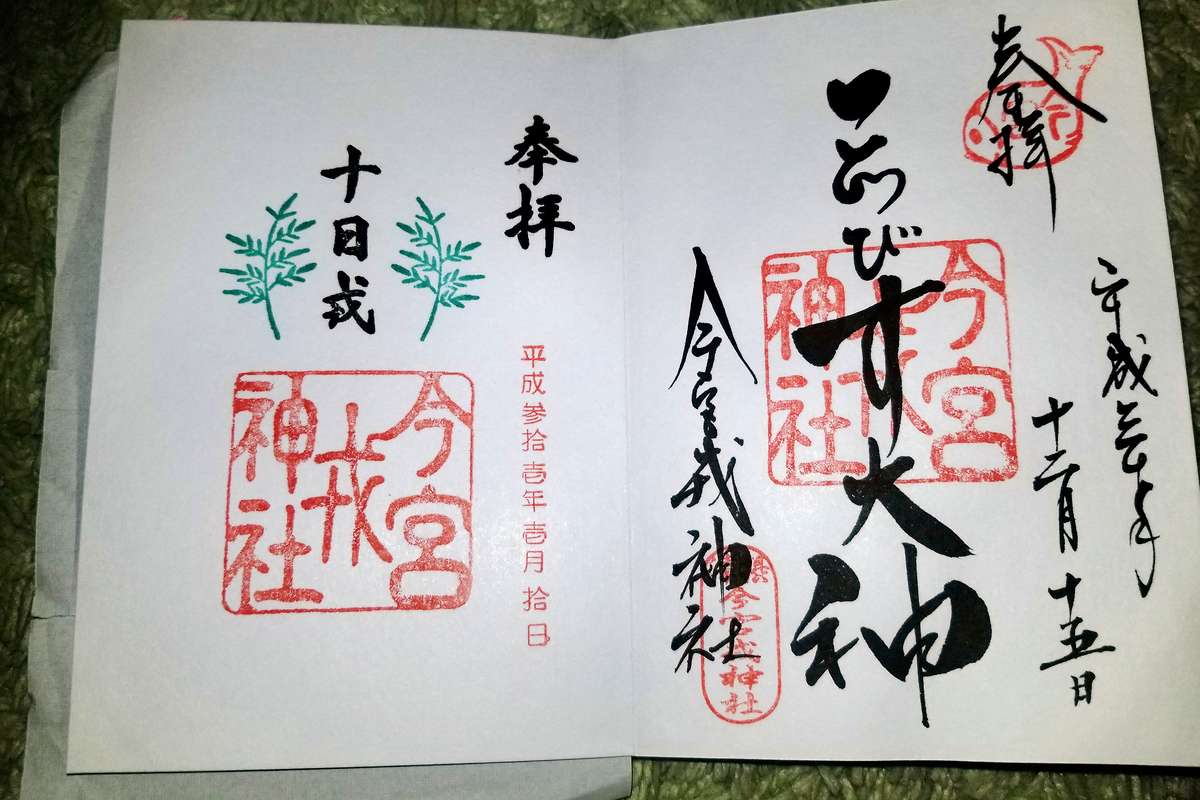 奉拝
平成三十年
十二月十五日
ゑびす大神
今宮
戎
神社
今宮戎神社
今宮戎神社
奉拝
平成参拾壱年壱月拾日
十日戎
今宮
戎
神社